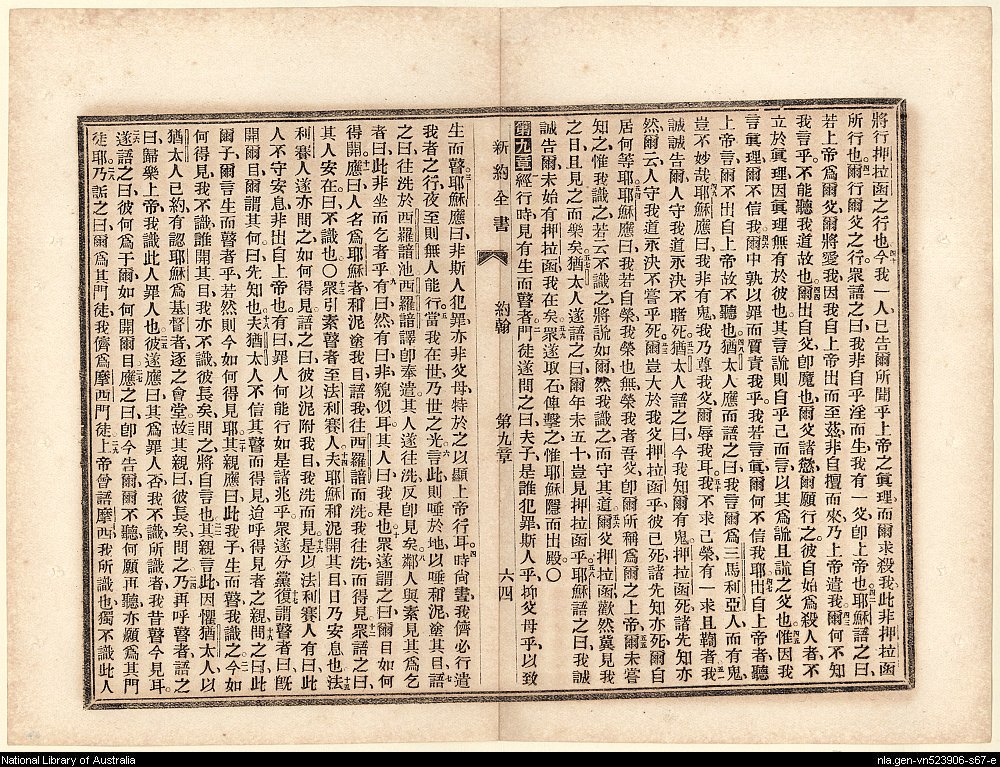 將行押拉函之行也今我一人已告爾所聞乎上帝之眞理而爾求殺我此非押拉函
所行也爾行爾父之行衆語之曰我非自乎淫而生我有一父卽上帝也耶穌語之曰
若上帝爲爾父爾將愛我因我自上帝出而至茲非自擅而來乃上帝遣我爾何不知
我言乎不能聽我道故也爾出自父卽魔也爾父諸慾爾願行之彼自始爲殺人者不
立於眞理因眞理無有於彼也其言謊則自乎己而言以其爲謊且謊之父也惟因我
言眞理爾不信我爾中孰以罪而質責我乎我若言眞理爾何不信我耶出自上帝者聽
上帝言爾不出自上帝故不聽也猶太人應而語之曰我言爾爲三馬利亞人而有鬼
豈不妙哉耶穌應曰我非有鬼我乃尊我父爾辱我耳我不求己榮有一求且鞫者我
誠誠告爾人守我道永決不睹死猶太人語之曰今我知爾有鬼押拉函死諸先知亦
然爾云人守我道永決不嘗乎死爾豈大於我父押拉函乎彼已死諸先知亦死爾自
居何等耶穌應曰我若自榮我榮也無榮我者吾父卽爾所稱爲爾之上帝爾未嘗
知之惟我識之若云不識之將謊如爾然我識之而守其道爾父押拉函歡然冀見我
之日且見之而樂矣猶太人遂語之曰爾年未五十豈見押拉函乎耶穌語之曰我誠
誠告爾未始有押拉函我在矣衆遂取石俾擊之惟耶穌隱而出殿〇
第九章經行時見有生而瞽者門徒遂問之曰夫子是誰犯罪斯人乎抑父母乎以致
新約全書 約翰 第九章 六四
生而瞽耶穌應曰非斯人犯罪亦非父母特於之以顯上帝行耳時尙晝我儕必行遣
我者之行夜至則無人能行當我在世乃世之光言此則唾於地以唾和泥塗其目語
之曰往洗於西羅諳池西羅諳譯卽奉遣其人遂往洗反卽見矣鄰人與素見其爲乞
者曰此非坐而乞者乎有曰然有曰非貌似耳其人曰我是也衆遂謂之曰爾目如何
得開應曰人名爲耶穌者和泥塗我目語我往西羅諳而洗我往洗而得見衆語之曰
其人安在曰不識也〇衆引素瞽者至法利賽人夫耶穌和泥開其目日乃安息也法
利賽人遂亦問之如何得見語之曰彼以泥附我目我洗而見是以法利賽人有曰此
人不守安息非出自上帝也有曰罪人何能行如是諸兆乎衆遂分黨復謂瞽者曰旣
開爾目爾謂其何曰先知也夫猶太人不信其瞽而得見迨呼得見者之親問之曰此
爾子爾言生而瞽者乎若然則今如何得見耶其親應曰此我子生而瞽我識之今如
何得見我不識誰開其目我亦不識彼長矣問之將自言也其親言此因懼猶太人以
猶太人已約有認耶穌爲基督者逐之會堂故其親曰彼長矣問之乃再呼瞽者語之
曰歸樂上帝我識此人罪人也彼遂應曰其爲罪人否我不識所識者我昔瞽今見耳
遂語之曰彼何爲于爾如何開爾目應之曰卽今告爾爾不聽何願再聽亦願爲其門
徒耶乃詬之曰爾爲其門徒我儕爲摩西門徒上帝曾語摩西我所識也獨不識此人
National Library of Australia
nla.gen-vn523906-s67-e